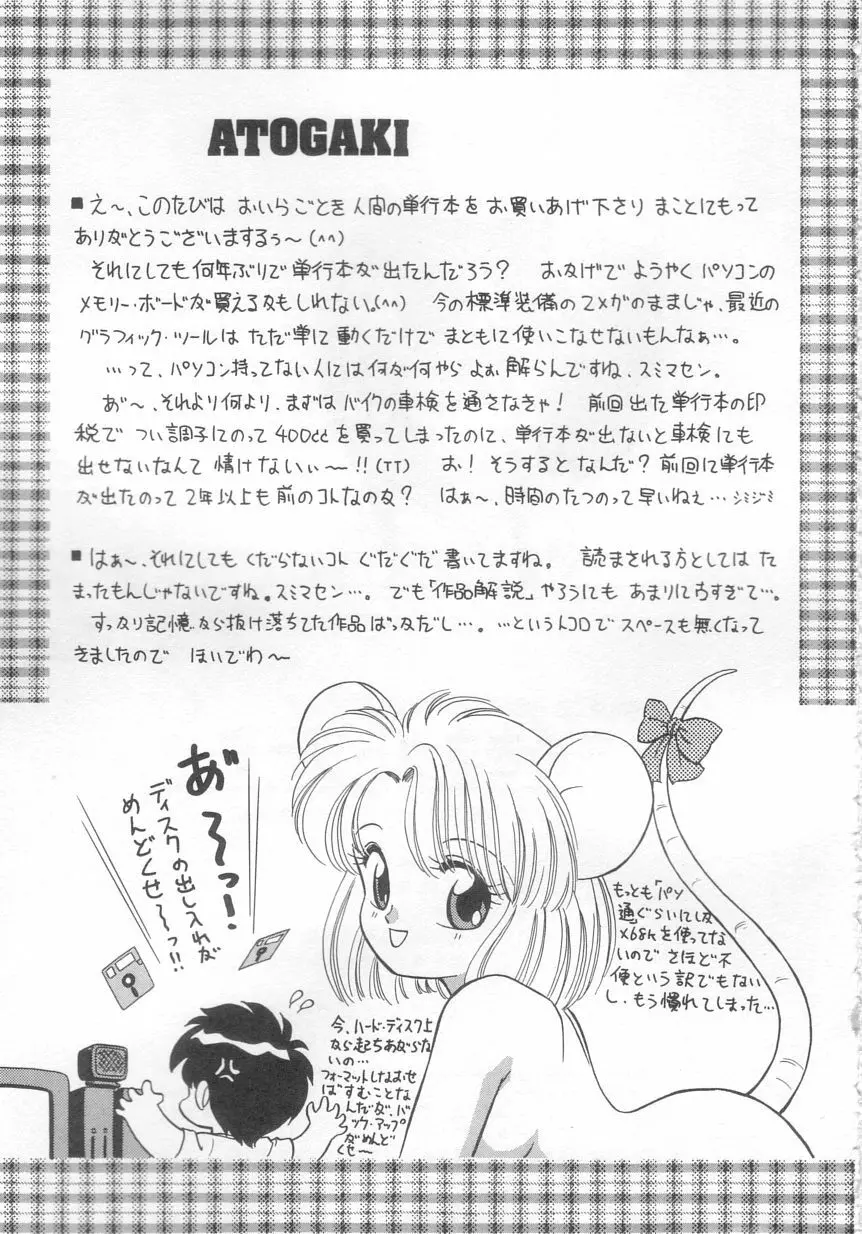 ATOGAKI
■え〜、このたびは おいらごとき人間の単行本を お買いあげ下さり まことにもって
ありがとうございまするぅ〜(^^)
それにしても何年ぶりで単行本が出たんだろう? おかげで ようやく パソコンの
メモリー・ボードが買えるかもしれない。(^^) 今の標準装備の2メガのままじゃ、最近の
グラフィック・ツールは ただ単に 動くだけで まともに使いこなせないもんなぁ…。
…って、パソコン持ってない人には何が何やら よぉ解らんですね、スミマセン。
あ゛〜、それより何より、まずは バイクの車検を通さなきゃ! 前回出た単行本の印
税で つい調子にのって 400ccを買ってしまったのに、単行本が出ないと車検にも
出せないなんて 情けないぃ〜!!(TT) お!そうすると なんだ?前回に単行本
が出たのって 2年以上も前のコトなのか? はぁ〜、時間のたつのって早いねぇ…シミジミ
■はぁ〜、それにしても くだらないコト ぐだぐだ 書いてますね。 読まされる方としては た
まったもんじゃないですね。スミマセン…。 でも「作品解説」やろうにも あまりに古すぎて…。
すっかり記憶から抜け落ちてた作品ばっかだし…。 …というトコロで スペースも無くなって
きましたので ほいでわ〜
あ゛〜っ!
ディスクの出し入れが
めんどくせ〜っ!!
もっとも「パソ
通」ぐらいにしか
X68kを使ってな
いので さほど不
便という訳でもない
し、もう慣れてしまった…
今、ハード・ディスク上
から起ちあがらな
いの…
フォーマットしなおせ
ば すむことな
んだが、バ
ック・アップ
がめんど
くせ〜